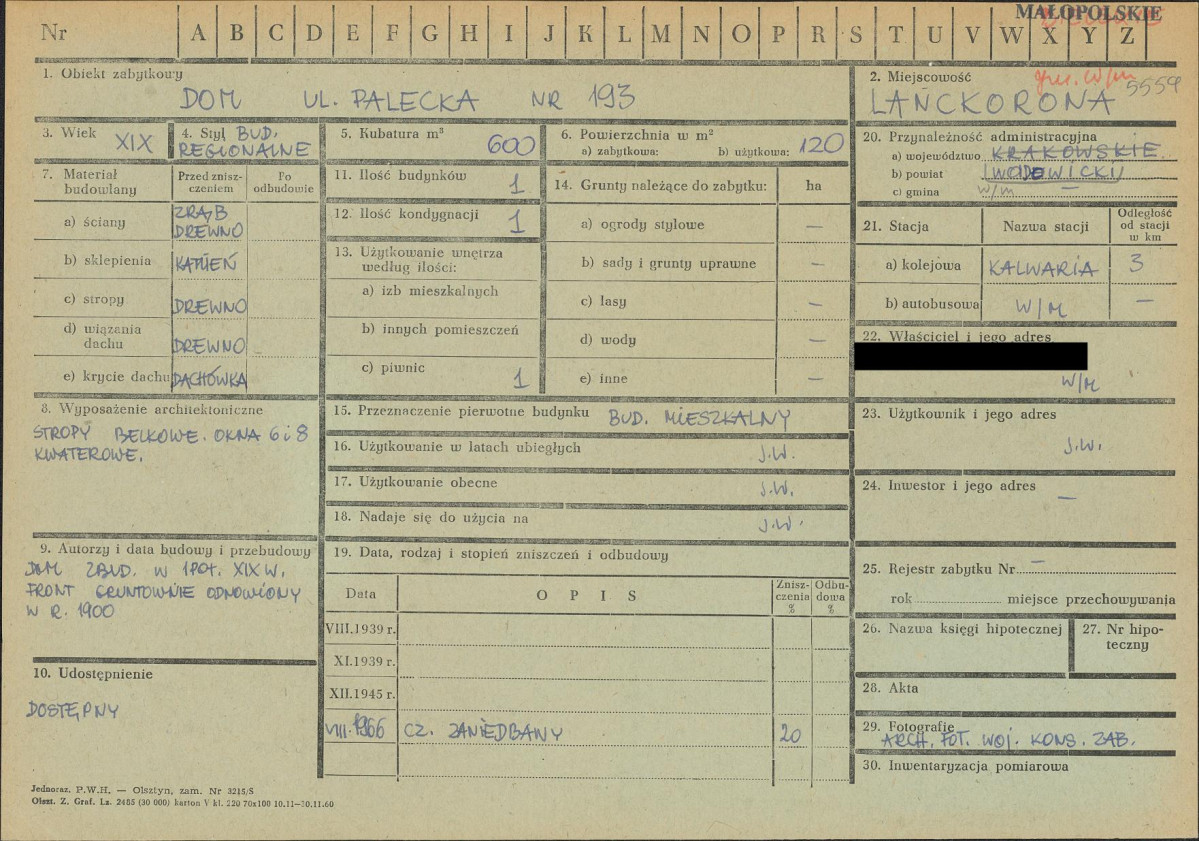 MAŁOPOLSKIE
Nr A B C D E F G H I J K L M N O P R S T U V W X Y Z
1. Obiekt zabytkowy
DOM UL. PALECKA NR 193
2. Miejscowość
5559
LANCKORONA
3. Wiek
XIX
4. Styl BUD.
REGIONALNE
5. Kubatura m³
600
6. Powierzchnia w m²
a) zabytkowa: b) użytkowa: 120
7. Materiał
budowlany
Przed znisz-
czeniem
Po
odbudowie
a) ściany
ZRĄB
DREWNO
b) sklepienia KAMIEŃ
c) stropy DREWNO
d) wiązania
dachu DREWNO
e) krycie dachu DACHÓWKA
8. Wyposażenie architektoniczne
STROPY BELKOWE. OKNA 6 i 8
KWATEROWE.
9. Autorzy i data budowy i przebudowy
DOM ZBUD. W 1 POŁ. XIX W.
FRONT GRUNTOWNIE ODNOWIONY
W R. 1900
10. Udostępnienie
DOSTĘPNY
11. Ilość budynków 1
12. Ilość kondygnacji 1
13. Użytkowanie wnętrza
według ilości:
a) izb mieszkalnych
b) innych pomieszczeń
c) piwnic 1
14. Grunty należące do zabytku: ha
a) ogrody stylowe —
b) sady i grunty uprawne —
c) lasy —
d) wody —
e) inne —
15. Przeznaczenie pierwotne budynku BUD. MIESZKALNY
16. Użytkowanie w latach ubiegłych J.W.
17. Użytkowanie obecne J.W.
18. Nadaje się do użycia na J.W.
19. Data, rodzaj i stopień zniszczeń i odbudowy
Data OPIS
Znisz-
czenia
%
Odbu-
dowa
%
VIII.1939 r.
XI.1939 r.
XII.1945 r.
VIII.1966 CZ. ZANIEDBANY 20
20. Przynależność administracyjna
a) województwo KRAKOWSKIE
b) powiat WODEWICKI
c) gmina W/M —
21. Stacja Nazwa stacji
Odległość
od stacji
w km
a) kolejowa KALWARIA 3
b) autobusowa W/M —
22. Właściciel i jego adres
W/M
23. Użytkownik i jego adres
J.W.
24. Inwestor i jego adres
—
25. Rejestr zabytku Nr —
rok miejsce przechowywania
26. Nazwa księgi hipotecznej
27. Nr hipo-
teczny
28. Akta
29. Fotografie
ARCH. FOT. WOJ. KONS. ZAB.
30. Inwentaryzacja pomiarowa
Jednoraz. P.W.H. — Olsztyn, zam. Nr 3215/S
Olszt. Z. Graf. Lz. 2485 (30 000) karton V kl. 220 70x100 10.11—30.11.60